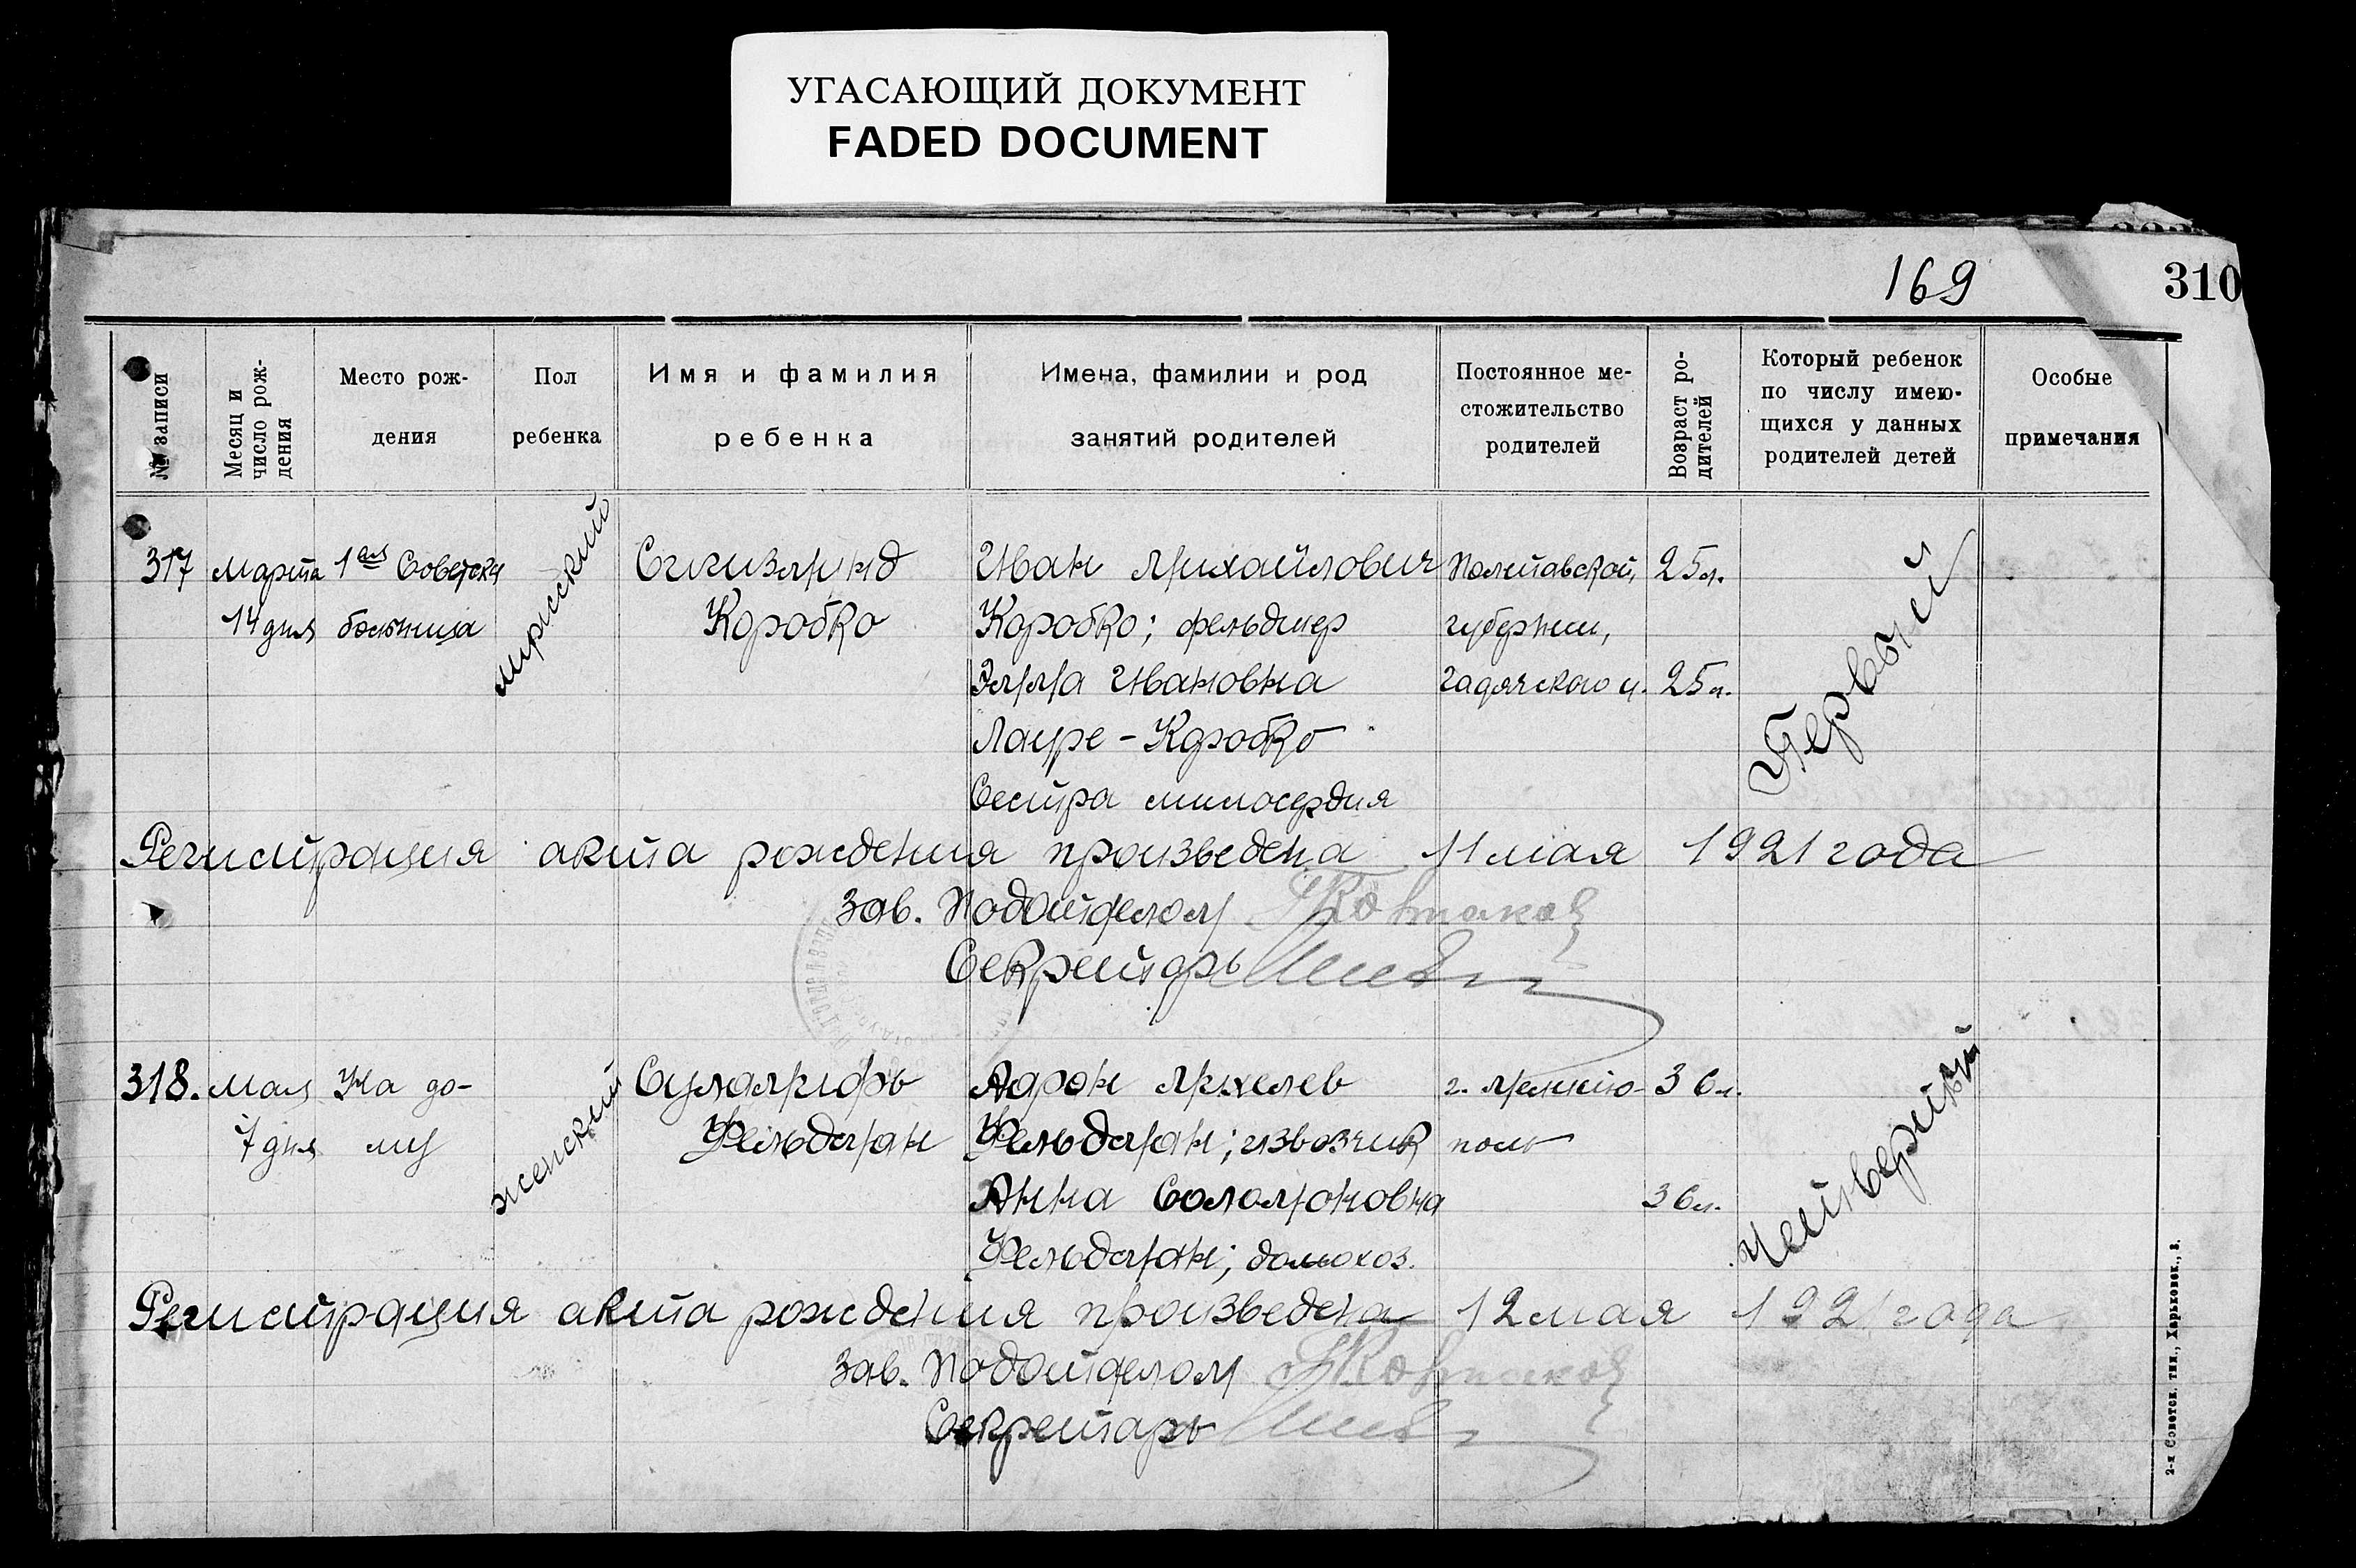 УГАСАЮЩИЙ ДОКУМЕНТ
FADED DOCUMENT
169
310
№ записи
Месяц и число рождения
Место рож-
дения
Пол
ребенка
Имя и фамилия
ребенка
Имена, фамилии и род
занятий родителей
Постоянное ме-
стожительство
родителей
Возраст ро-
дителей
Который ребенок
по числу имею-
щихся у данных
родителей детей
Особые
примечания
317 марта 1ая Советск мужской Сигизмунд Иван Михайлович Полтавской, 25 л. Первый
14 дня больница Коробко Коробко; фельдшер губернии,
Эмма Ивановна Гадячского у. 25 л.
Лауре-Коробко
Сестра милосердия
Регистрация акта рождения произведена 11 мая 1921 года
Зав. Подотделом
Секретарь
318. мая На до- женский Суламифь Аарон Михелев г. Мелито- 36 л. Четвертый
7 дня му Фельдман Фельдман; извозчик поль
Анна Соломоновна 36 л.
Фельдман; домохоз.
Регистрация акта рождения произведена 12 мая 1921 года
Зав. Подотделом
Секретарь
2-я Советск. тип., Харьковск., 8.